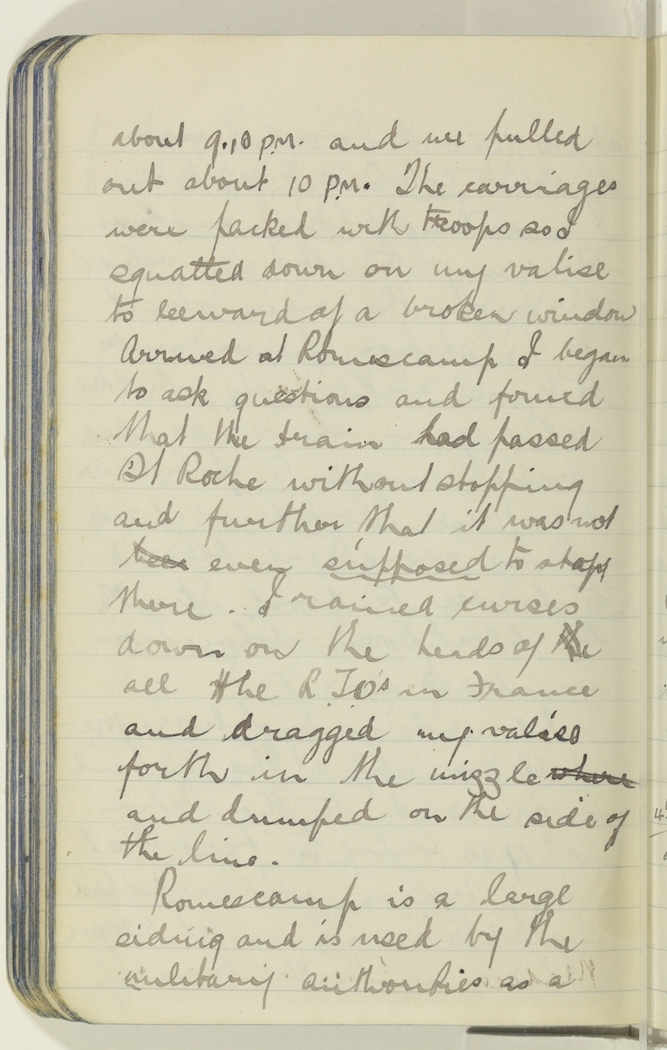 about 9.10 P.M. and we pulled
out about 10 P.M. The carriages
were packed with troops so I
squatted down on my valise
to leeward of a broken window
Arrived at Romescamp I began
to ask questions and found
that the train had passed
St Roche without stopping
and further that it was not
been even supposed to stop
there. I rained curses
down on the heads of the
all the R.T.O's in France
and dragged my valise
forth in the mizzle where
and dumped on the side of
the line.
Romescamp is a large
siding and is used by the
military authorities as a